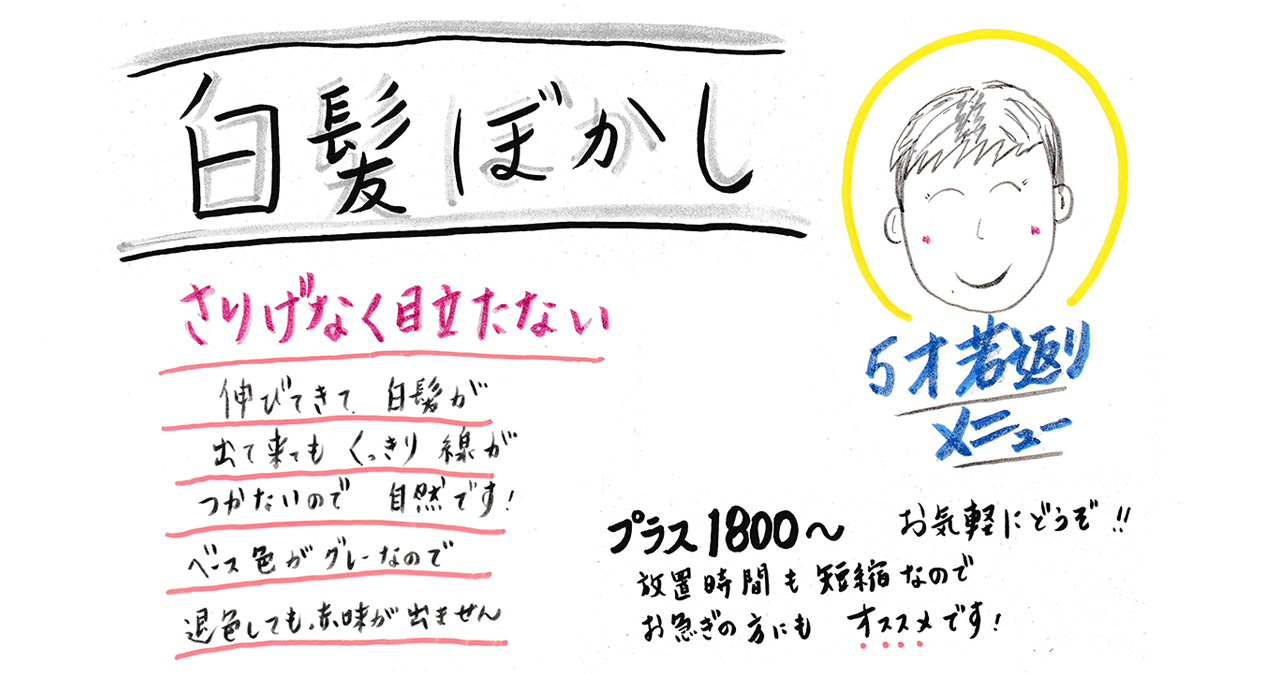 白髪ぼかし
さりげなく目立たない
伸びてきて 白髪が
出て来ても くっきり 線が
つかないので 自然です!
ベース色が グレーなので
退色しても、赤味が 出ません
5才若返り
メニュー
プラス1800〜 お気軽にどうぞ!!
放置時間も 短縮なので
お急ぎの方にも オススメです!